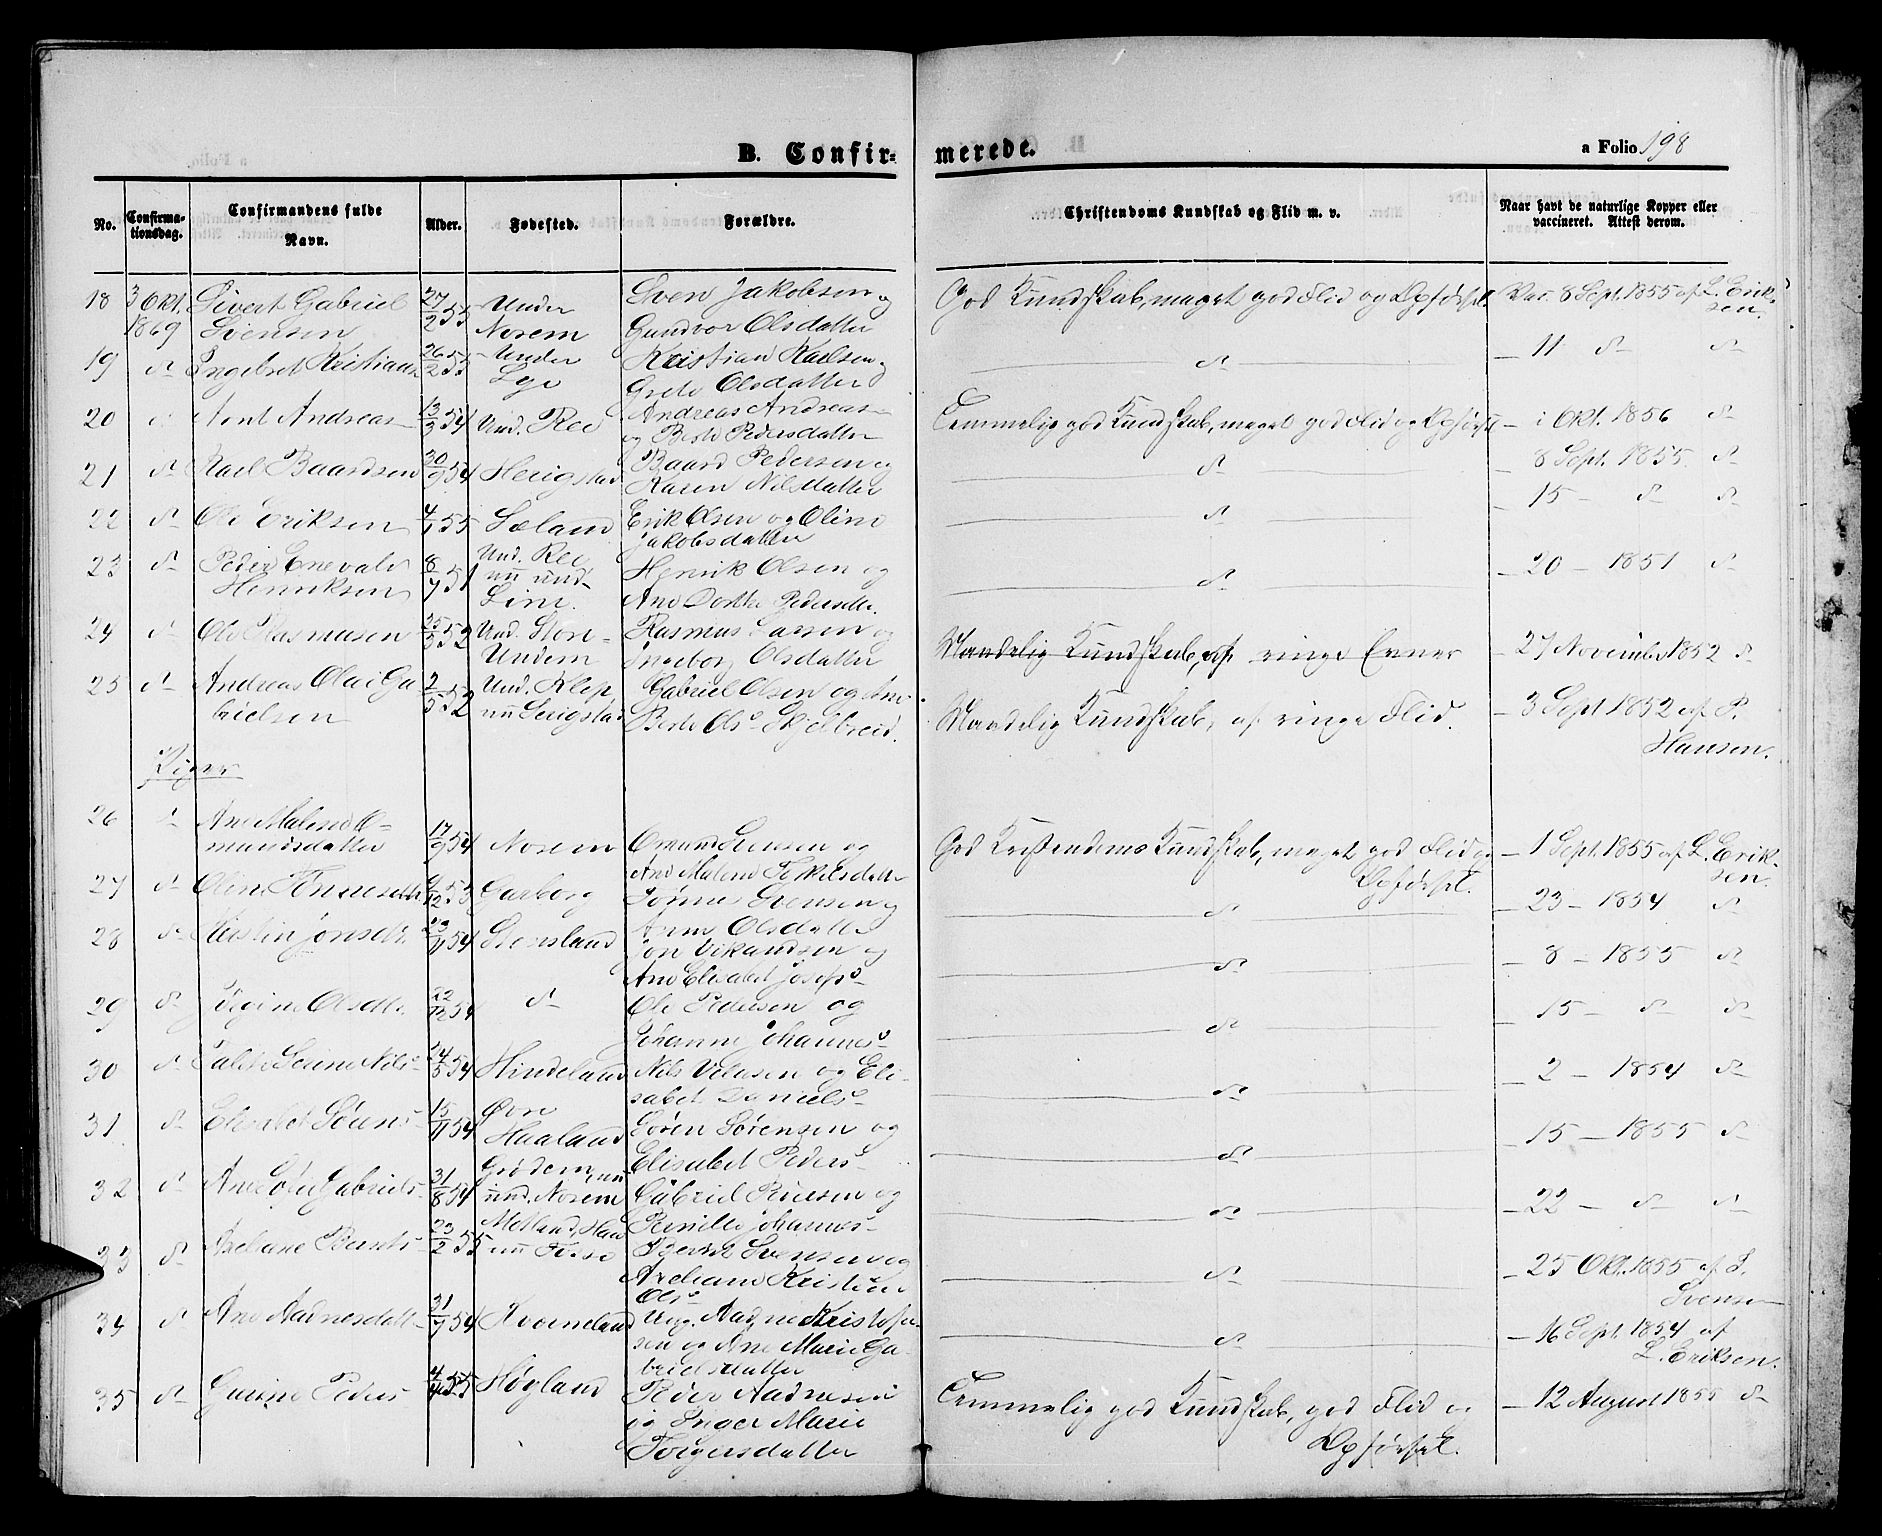 B. Confirmerede.
a Folio 198
No.
Confirmationsdag.
Confirmandens fulde Navn.
Alder.
Fødested.
Forældre.
Christendoms Kundskab og Flid m. v.
Naar havt de naturlige Kopper eller vaccineret. Attest derom.
18 3 Okt. 1869 Sivert Gabriel Svensen 27/2 55 Under Norem Sven Jakobsen og Gundvor Olsdatter God Kundskab, meget god Flid og Opførsel Vac. 8 Sept. 1855 af L. Eriksen.
19 d- Ingebret Kristians 26/2 55 Under Lye Kristian Karlsen og Grete Olsdatter d- – 11 d- d-
20 d Aont Andreas- 13/3 54 Und. Ree Andreas Andreas- og Berte Pedersdatter Temmelig god Kundskab, meget god Flid og Opførsel – i Okt. 1856 d-
21 d- Karl Baardsen 30/9 54 Herigstad Baard Pedersen og Karen Nilsdatter d- – 8 Sept. 1855 d-
22 d- Ole Eriksen 4/1 55 Sæland Erik Olsen og Oline Jakobsdatter d- – 15 – d- d-
23 d- Peder Enevald Henriksen 8/7 51 Und. Ree, nu und. Line. Henrik Olsen og Ane Dorthe Pedersdtr. d- – 20 – 1851 d-
24 d- Ole Rasmusen 25/3 52 Und. Store-Undem Rasmus Larsen og Ingeborg Olsdatter Maadelig Kundskab, af ringe Evner – 27 November 1852 d-
25 d- Andreas Olai Gabrielsen 2/5 52 Und. Klep nu Serigstad Gabriel Olsen og Ane Berte Ols- Skjelbreid. Maadelig Kundskab, af ringe Flid. – 3 Sept 1852 af P. Hansen.
Piger
26 d- Ane Malene Omundsdatter 17/9 54 Norem Omund Svensen og Ane Malene Torkelsdatter God Kristendoms Kundskab, meget god Flid og Opførsel. – 1 Sept. 1855 af L. Eriksen.
27 d- Oline Tønnesdtr. 9/12 53 Garborg Tønnes Svensen og Anne Olsdatter d- – 23 – 1854 d-
28 d- Kirstin Jonsdtr. 23/11 54 Stensland Jon Vikandsen og Ane Elisabet Josefs- d- – 8 – 1855 d-
29 d- Jegine Olsdtr. 22/12 54 d- Ole Pedersen og Johanne Johannes- d- – 15 – d- d-
30 d- Talette Serine Nils- 24/5 54 Hindeland Nils Velusen og Elisabet Daniels- d- – 2 – 1854 d-
31 d- Elisabet Sørens- 15/11 54 Øvre Haaland Sören Sørensen og Elisabet Peders- d- – 15 – 1855 d-
32 d- Ane Sofie Gabriels- 31/8 54 Grødem, nu und. Norem Gabriel Riisen og Pernille Johannes- d- – 22 – d- d-
33 d- Axeliane Bernts- 23/2 55 Motland, Haa nu Fosse Bernt Svensen og Axeliane Kristine Ols- d- – 25 Okt. 1855 af S. Svensen
34 d- Ane Aadnesdatt- 31/7 54 Kverneland Ung. Aadne Kristofersen og Ane Marie Gabrielsdatter d- – 16 Sept. 1854 af L. Eriksen.
35 d- Gurine Peders 4/4 55 Høyland Peder Aadnesen og Inger Marie Torgersdatter Temmelig god Kundskab, god Flid og Opførsel. – 12 August 1855 d-